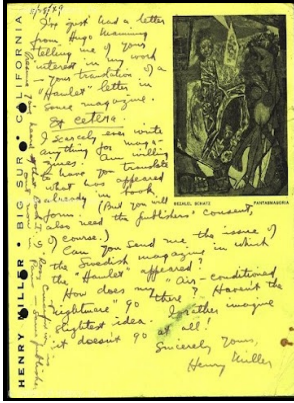 5/28/49
I've just had a letter
from Hugo Manning
telling me of your
interest in my work
— your translation of a
"Hamlet" letter in
some magazine.
Et cetera.
I scarcely ever write
anything for maga-
zines. Am willing
to have you translate
what has appeared
already in book
form. (But you will
also need the publishers' consent,
of course.)
Can you send me the issue of
the Swedish magazine in which
the "Hamlet" appeared?
How does my "Air-conditioned
nightmare" go there? Haven't the
slightest idea. I rather imagine
it doesn't go at all!
Sincerely yours,
Henry Miller
BEZALEL SCHATZ
PHANTASMAGORIA
HENRY MILLER • BIG SUR • CALIFORNIA